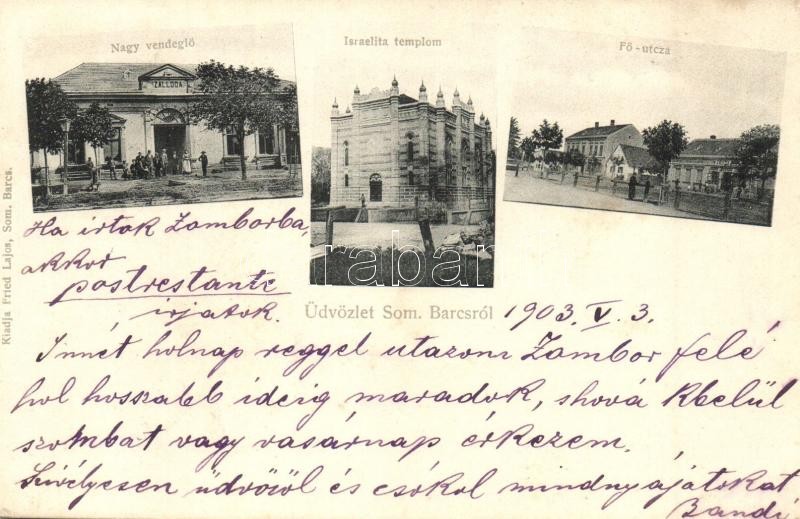 Nagy vendeglő
Israelita templom
Fő-utcza
ZÁLLODA
Kiadja Fried Lajos, Som. Barcs.
Ha irtok Zomborba,
akkor
postrestante
irjatok.
Üdvözlet Som. Barcsról
1903. V. 3.
Innét holnap reggel utazom Zombor felé
hol hosszabb ideig maradok, s hová kbelül
szombat vagy vasárnap érkezem.
Szivélyesen üdvözöl és csókol mindnyájatokat
Bandi
darabanth